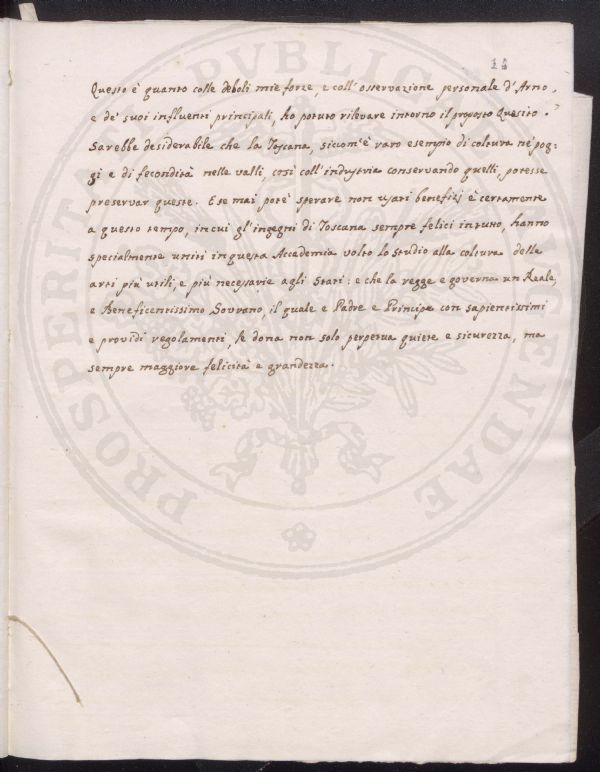 11
Questo è quanto colle deboli mie forze, e coll'osservazione personale d'Arno,
e de' suoi influenti principali, ho potuto rilevare intorno il proposto Quesito.
Sarebbe desiderabile che la Toscana, siccom'è raro esempio di coltura ne' pog-
gi e di fecondità nelle valli, così coll'industria conservando quelli, potesse
preservar queste. E se mai potè sperare non usati benefizj è certamente
a questo tempo, in cui gl'ingegni di Toscana sempre felici in tutto, hanno
specialmente uniti in questa Accademia volto lo studio alla coltura delle
arti più utili, e più necessarie agli Stati: e che la regge e governa un Reale,
e Beneficentissimo Sovrano, il quale e Padre e Principe con sapientissimi
e providi regolamenti, le dona non solo perpetua quiete e sicurezza, ma
sempre maggiore felicità e grandezza.
PROSPERITATI PUBLICAE AUGENDAE